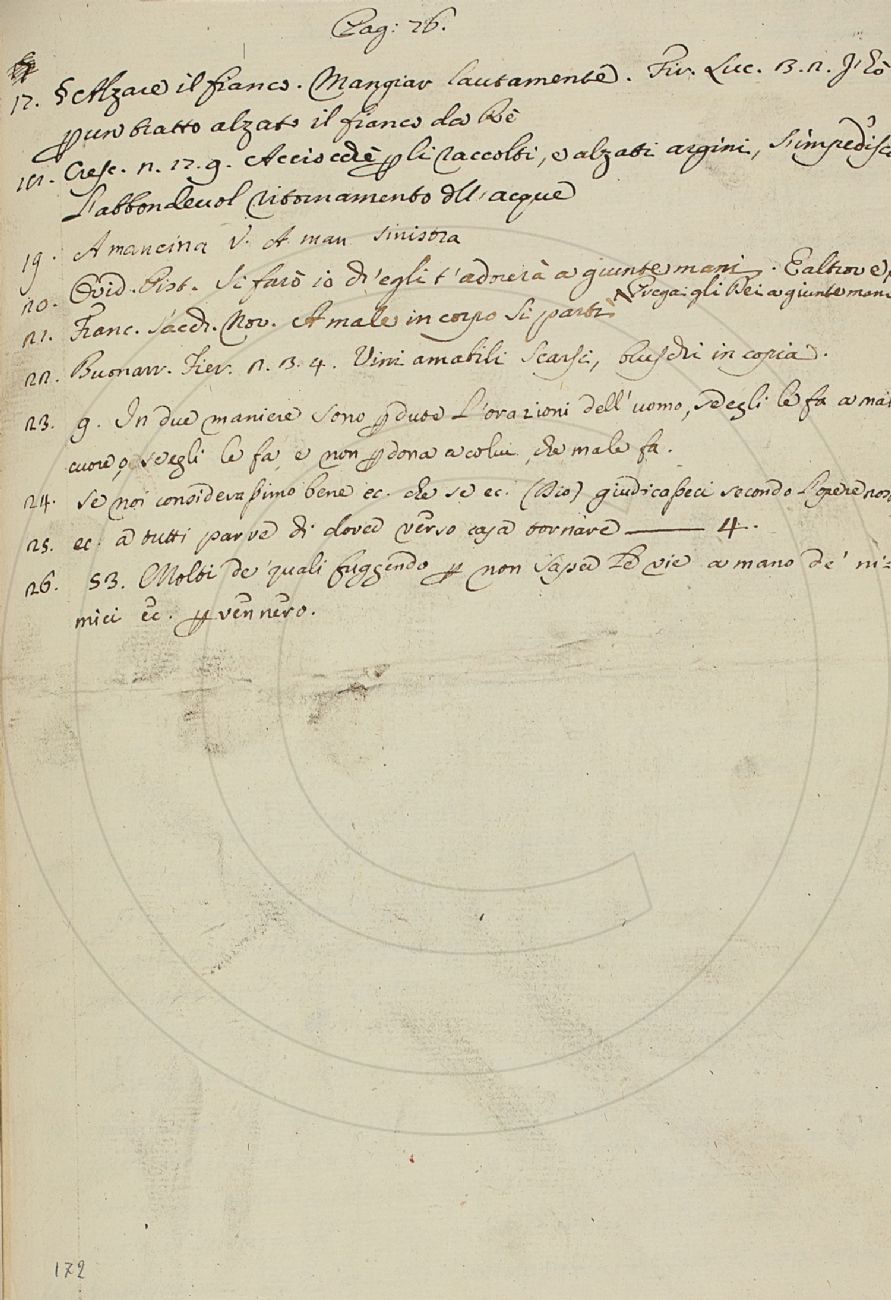 Pag: 26.
17. § Alzare il fianco. Mangiar lautamente. Fir. Luc. 3. 2. J' hò
p un tratto alzato il fianco da Rè
18. Cresc. 2. 17. 9. Acciocchè p li raccolti, e alzati argini, s'impedisca
L'abbondevol ritornamento dll'acque
19. A mancina V. A man sinistra
20. Ovid. Pist. Si farò io ch'egli t'adorerà a giunte mani. E altrove,
Prega gli Dei a giunte mani
21. Franc. Sacch. Nov. A male in corpo si partì
22. Buonarr. Fier. 2. 3. 4. Vini amabili scarsi, bruschi in copia.
23. 9. In due maniere sono pdute L'orazioni dell'uomo, s'egli le fa a mal
cuore, o, s'egli le fa, e non pdona a colui, che male fa.
24. Se noi considerassimo bene ec. che se ec. (Dio) giudicasseci secondo L'opere nos
25. ec. a tutti parve di dover verso casa tornare ——— 4.
26. 53. Molti de' quali fuggendo p non saper le vie a mano de' ni=
mici ec. pvennero.
172